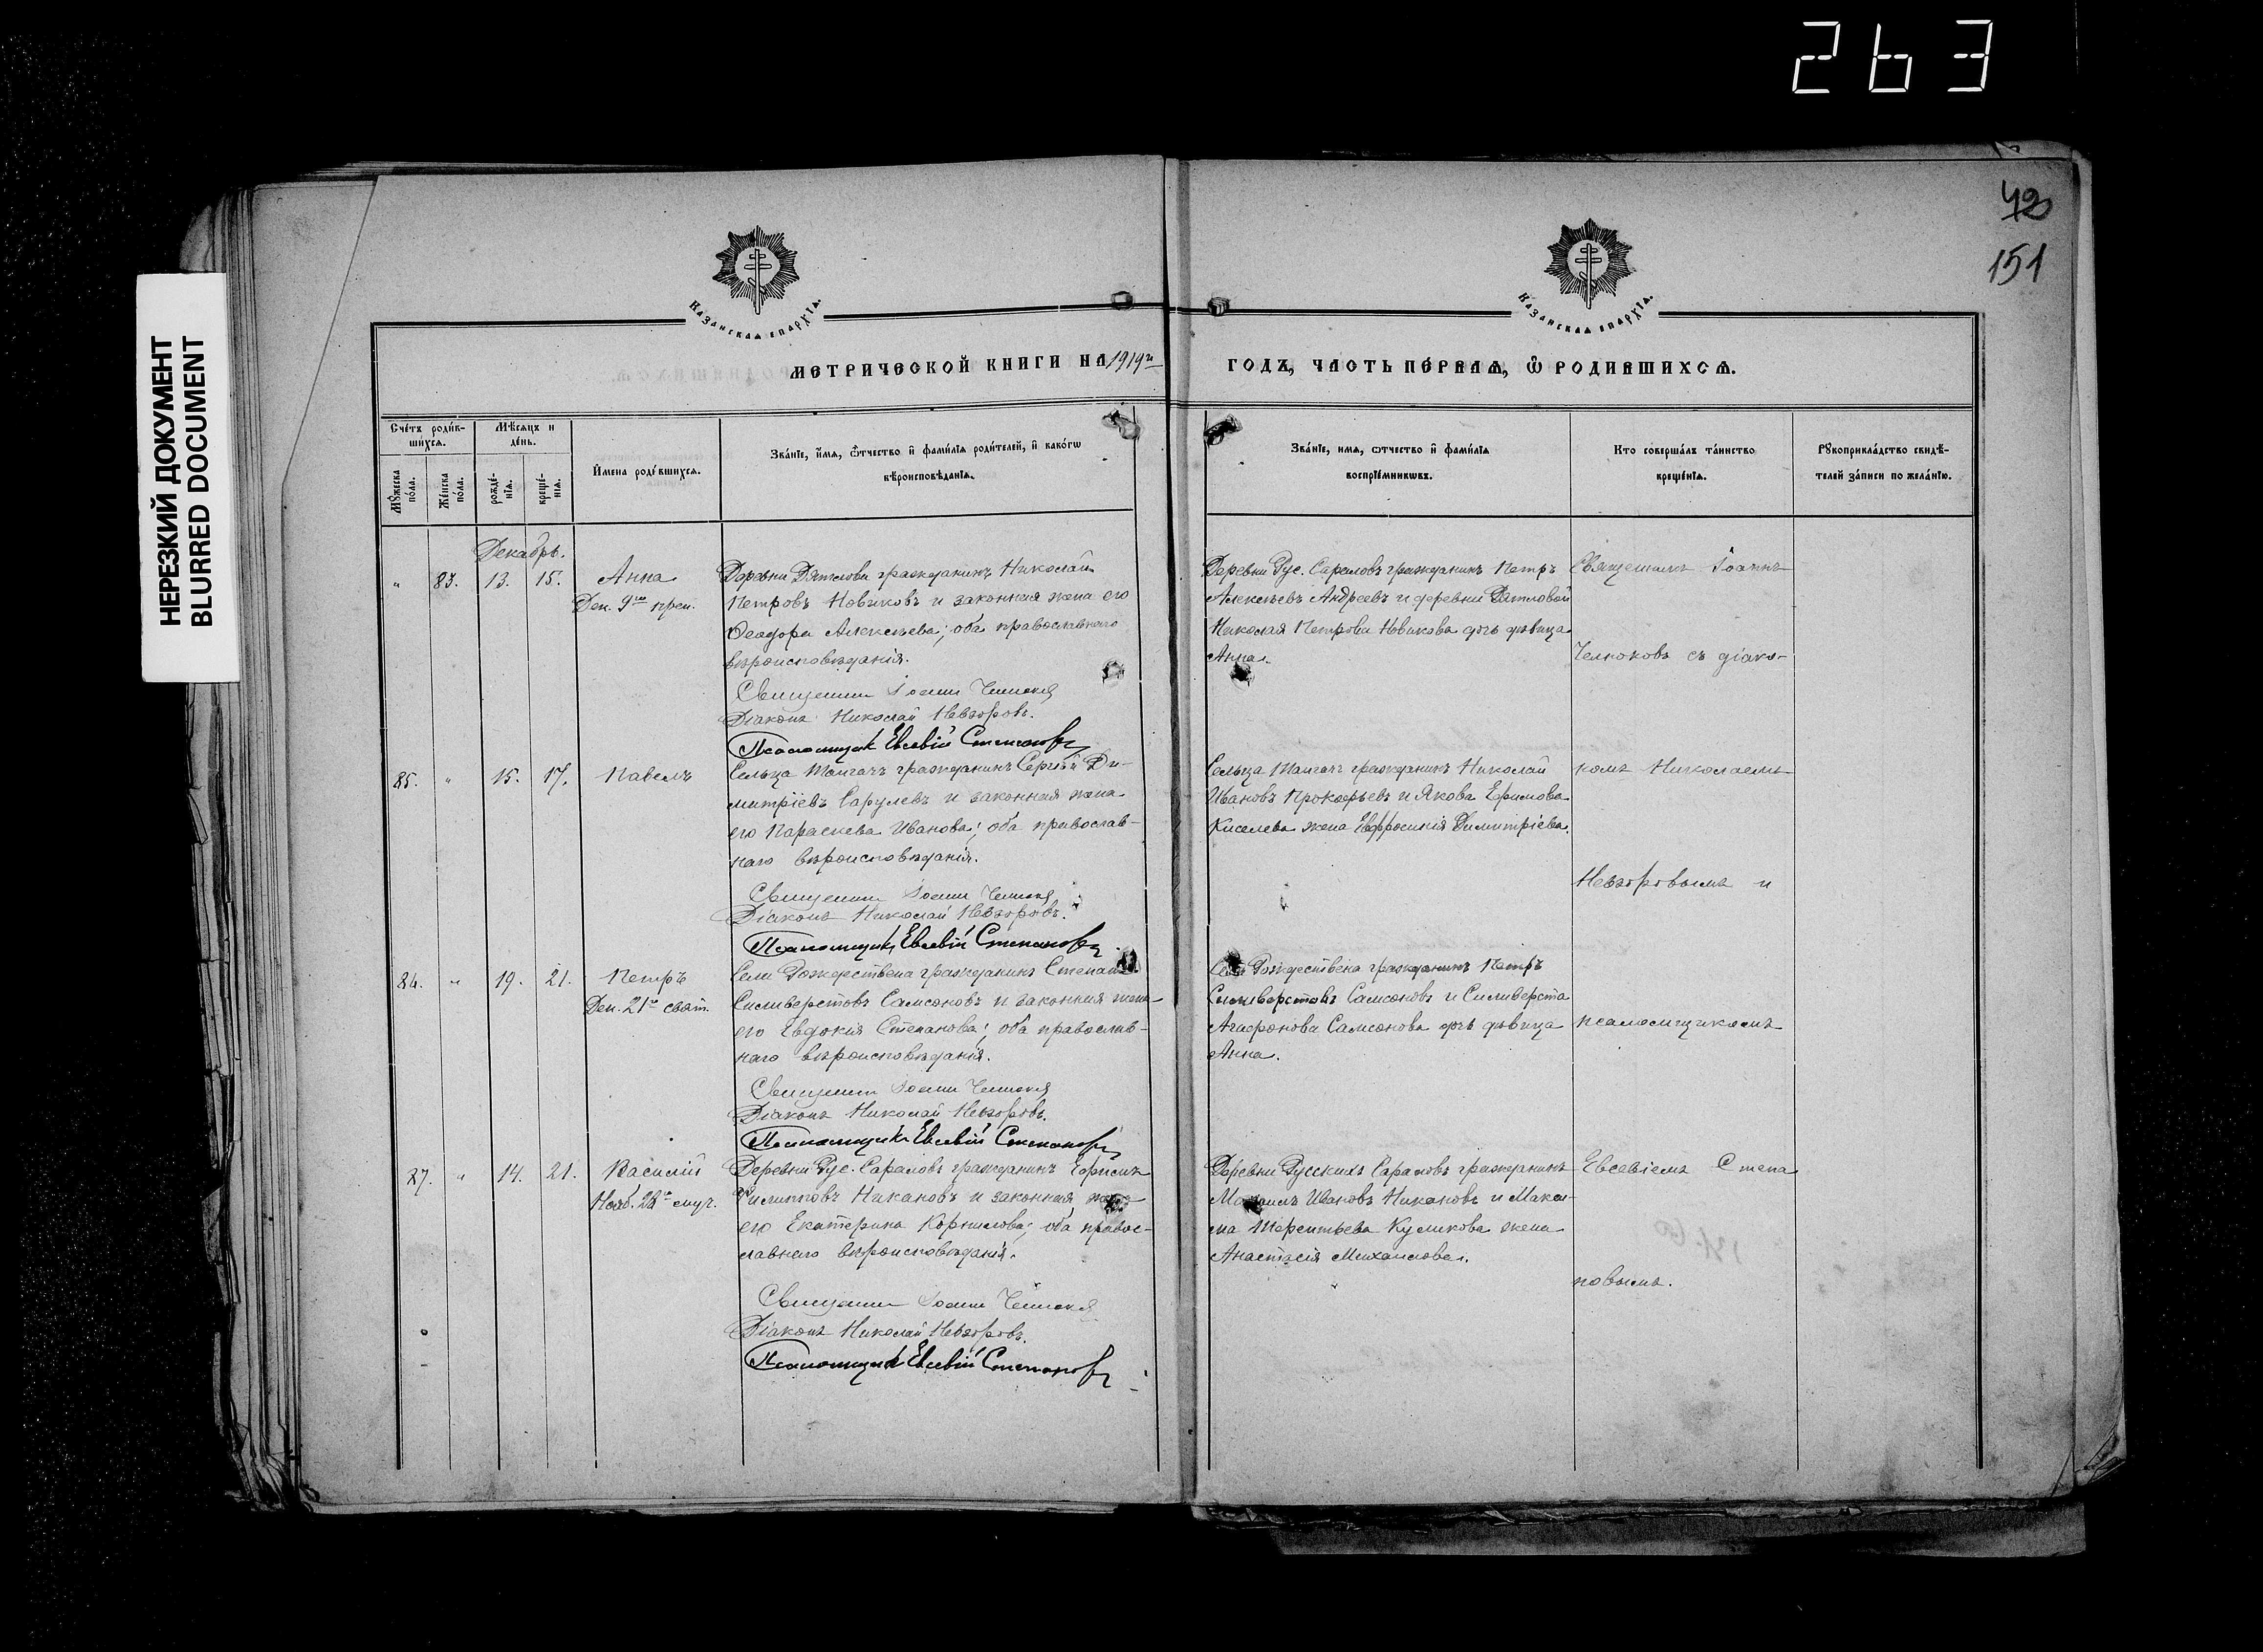 263
42
151
НЕРЕЗКИЙ ДОКУМЕНТ
BLURRED DOCUMENT
КАЗАНСКАЯ ЕПАРХІЯ.
КАЗАНСКАЯ ЕПАРХІЯ.
МЕТРИЧЕСКОЙ КНИГИ НА 1919й ГОДЪ, ЧАСТЬ ПЕРВАЯ, Ѿ РОДИВШИХСѦ.
Счетъ родив-
шихся.
Мѣсяцъ и
день.
Мужеска
пола.
Женска
пола.
рожде-
нія.
креще-
нія.
Имена родившихся.
Званіе, имя, ѿтчество и фамилія родителей, и какогѡ
вѣроисповѣданія.
Званіе, имя, ѿтчество и фамилія
воспріемникѡвъ.
Кто совершалъ таинство
крещенія.
Рукоприкладство свидѣ-
телей записи по желанію.
Декабрь.
" 83. 13. 15. Анна
Дек. 9го преп.
Деревни Дятлова гражданинъ Николай
Петровъ Новиковъ и законная жена его
Ѳеодора Алексѣева; оба православнаго
вѣроисповѣданія.
Священникъ Іоаннъ Челноковъ
Діаконъ Николай Невзоровъ.
Псаломщикъ Евсевій Степановъ
Деревни Рус. Сараловъ гражданинъ Петръ
Алексѣевъ Андреевъ и деревни Дятловой
Николая Петрова Новикова дочь дѣвица
Анна.
Священникъ Іоаннъ
Челноковъ съ діако-
85. " 15. 17. Павелъ
Сельца Ташгачъ гражданинъ Сергій Ди-
митріевъ Сарулевъ и законная жена
его Параскева Иванова; оба православ-
наго вѣроисповѣданія.
Священникъ Іоаннъ Челноковъ
Діаконъ Николай Невзоровъ.
Псаломщикъ Евсевій Степановъ
Сельца Ташгачъ гражданинъ Николай
Ивановъ Прокофьевъ и Якова Ефимова
Киселева жена Евфросинія Димитріева.
номъ Николаемъ
Невзоровымъ и
84. " 19. 21. Петръ
Дек. 21го свят.
Села Рождествена гражданинъ Степанъ
Силиверстовъ Самсоновъ и законная жена
его Евдокія Степанова; оба православ-
наго вѣроисповѣданія.
Священникъ Іоаннъ Челноковъ
Діаконъ Николай Невзоровъ.
Псаломщикъ Евсевій Степановъ
Села Рождествена гражданинъ Петръ
Силиверстовъ Самсоновъ и Силиверста
Агафонова Самсонова дочь дѣвица
Анна.
псаломщикомъ
87. " 14. 21. Василій
Нояб. 28го муч.
Деревни Рус. Сараловъ гражданинъ Ефимъ
Филипповъ Никановъ и законная жена
его Екатерина Корнилова; оба право-
славнаго вѣроисповѣданія.
Священникъ Іоаннъ Челноковъ
Діаконъ Николай Невзоровъ.
Псаломщикъ Евсевій Степановъ
Деревни Русскихъ Сараловъ гражданинъ
Ивановъ Никановъ и Макси-
ма Терентьева Куликова жена
Анастасія Михаилова.
Евсевіемъ Степа
новымъ.